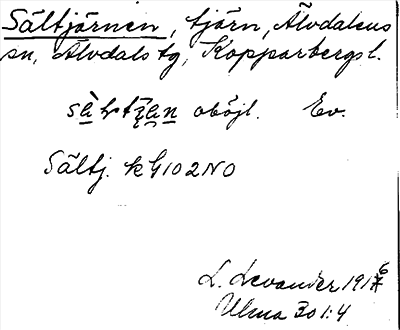 Sältjärnen, tjärn, Älvdalens
sn, Älvdals tg, Kopparbergs l.
oböjl. Ev.
Sältj. k G102NO
L. Levander 1916
Ulma 30 1:4